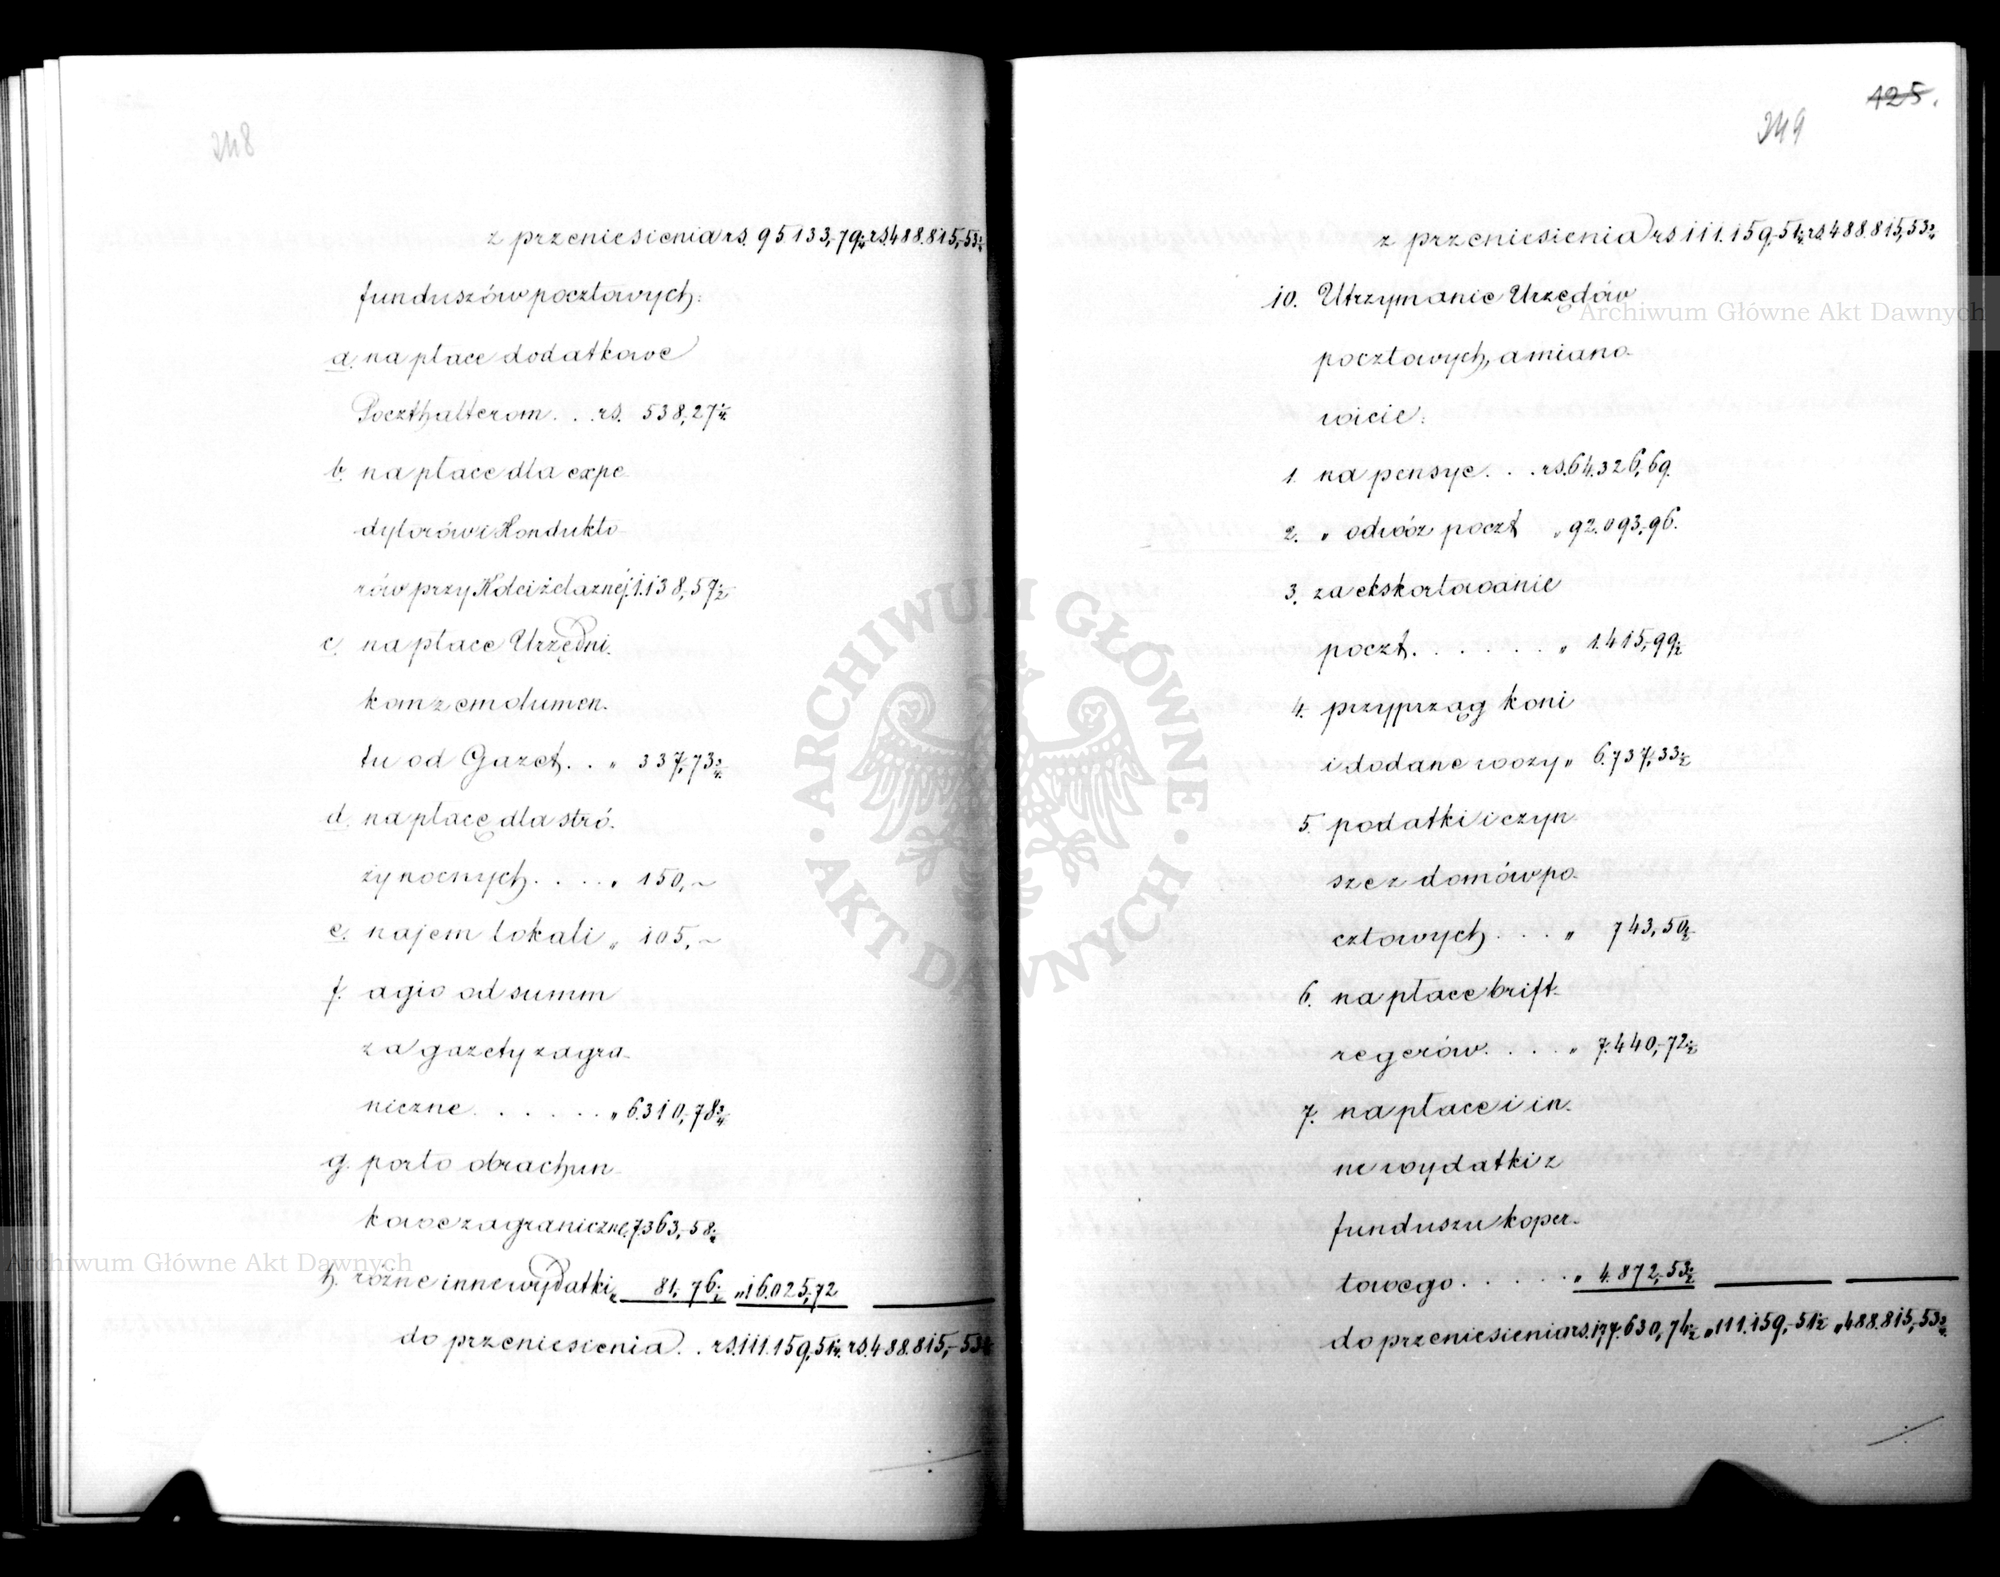 248
z przeniesienia rs. 95.133,79¼ rs. 488.815,53¾
funduszów pocztowych:
a. na płace dodatkowe
Poczthalterom . . . rs. 538,27¼
b. na płace dla expe-
dytorów i Kondukto-
rów przy Kolei żelaznéj. 1.138,57½
c. na płace Urzędni-
kom z emolumen-
tu od Gazet. . . „ 337,73¾
d. na płacę dla stró-
ży nocnych. . . . „ 150,~
e. najem lokali „ 105,~
f. agio od summ
za gazety zagra-
niczne. . . . . . . „ 6.310,78¾
g. porto obrachun-
kowe zagraniczne 7.363,58
h. różne inne wydatki „ 81,76½ „ 16.025,72
do przeniesienia . . rs. 111.159,51¼ rs. 488.815,53¾
125.
249
z przeniesienia rs 111.159,51¼ rs. 488.815,53¾
10. Utrzymanie Urzędów
pocztowych, a miano-
wicie:
1. na pensye . . . rs. 64.326,69.
2. „ odwóz poczt „ 92.093,96.
3. za eskortowanie
poczt. . . . . . . „ 1.415,99½
4. przyprząg koni
i dodane wozy „ 6.737,33½
5. podatki i czyn-
sze z domów po-
cztowych . . . „ 743,50½
6. na płace brift-
regerów. . . . . „ 7.440,72½
7. na płace i in-
ne wydatki z
funduszu koper-
towego. . . . . . „ 4.872,53½
do przeniesienia rs. 177.630,74½ „ 111.159,51¼ „ 488.815,53¾
Archiwum Główne Akt Dawnych
ARCHIWUM GŁÓWNE · AKT DAWNYCH ·
Archiwum Główne Akt Dawnych